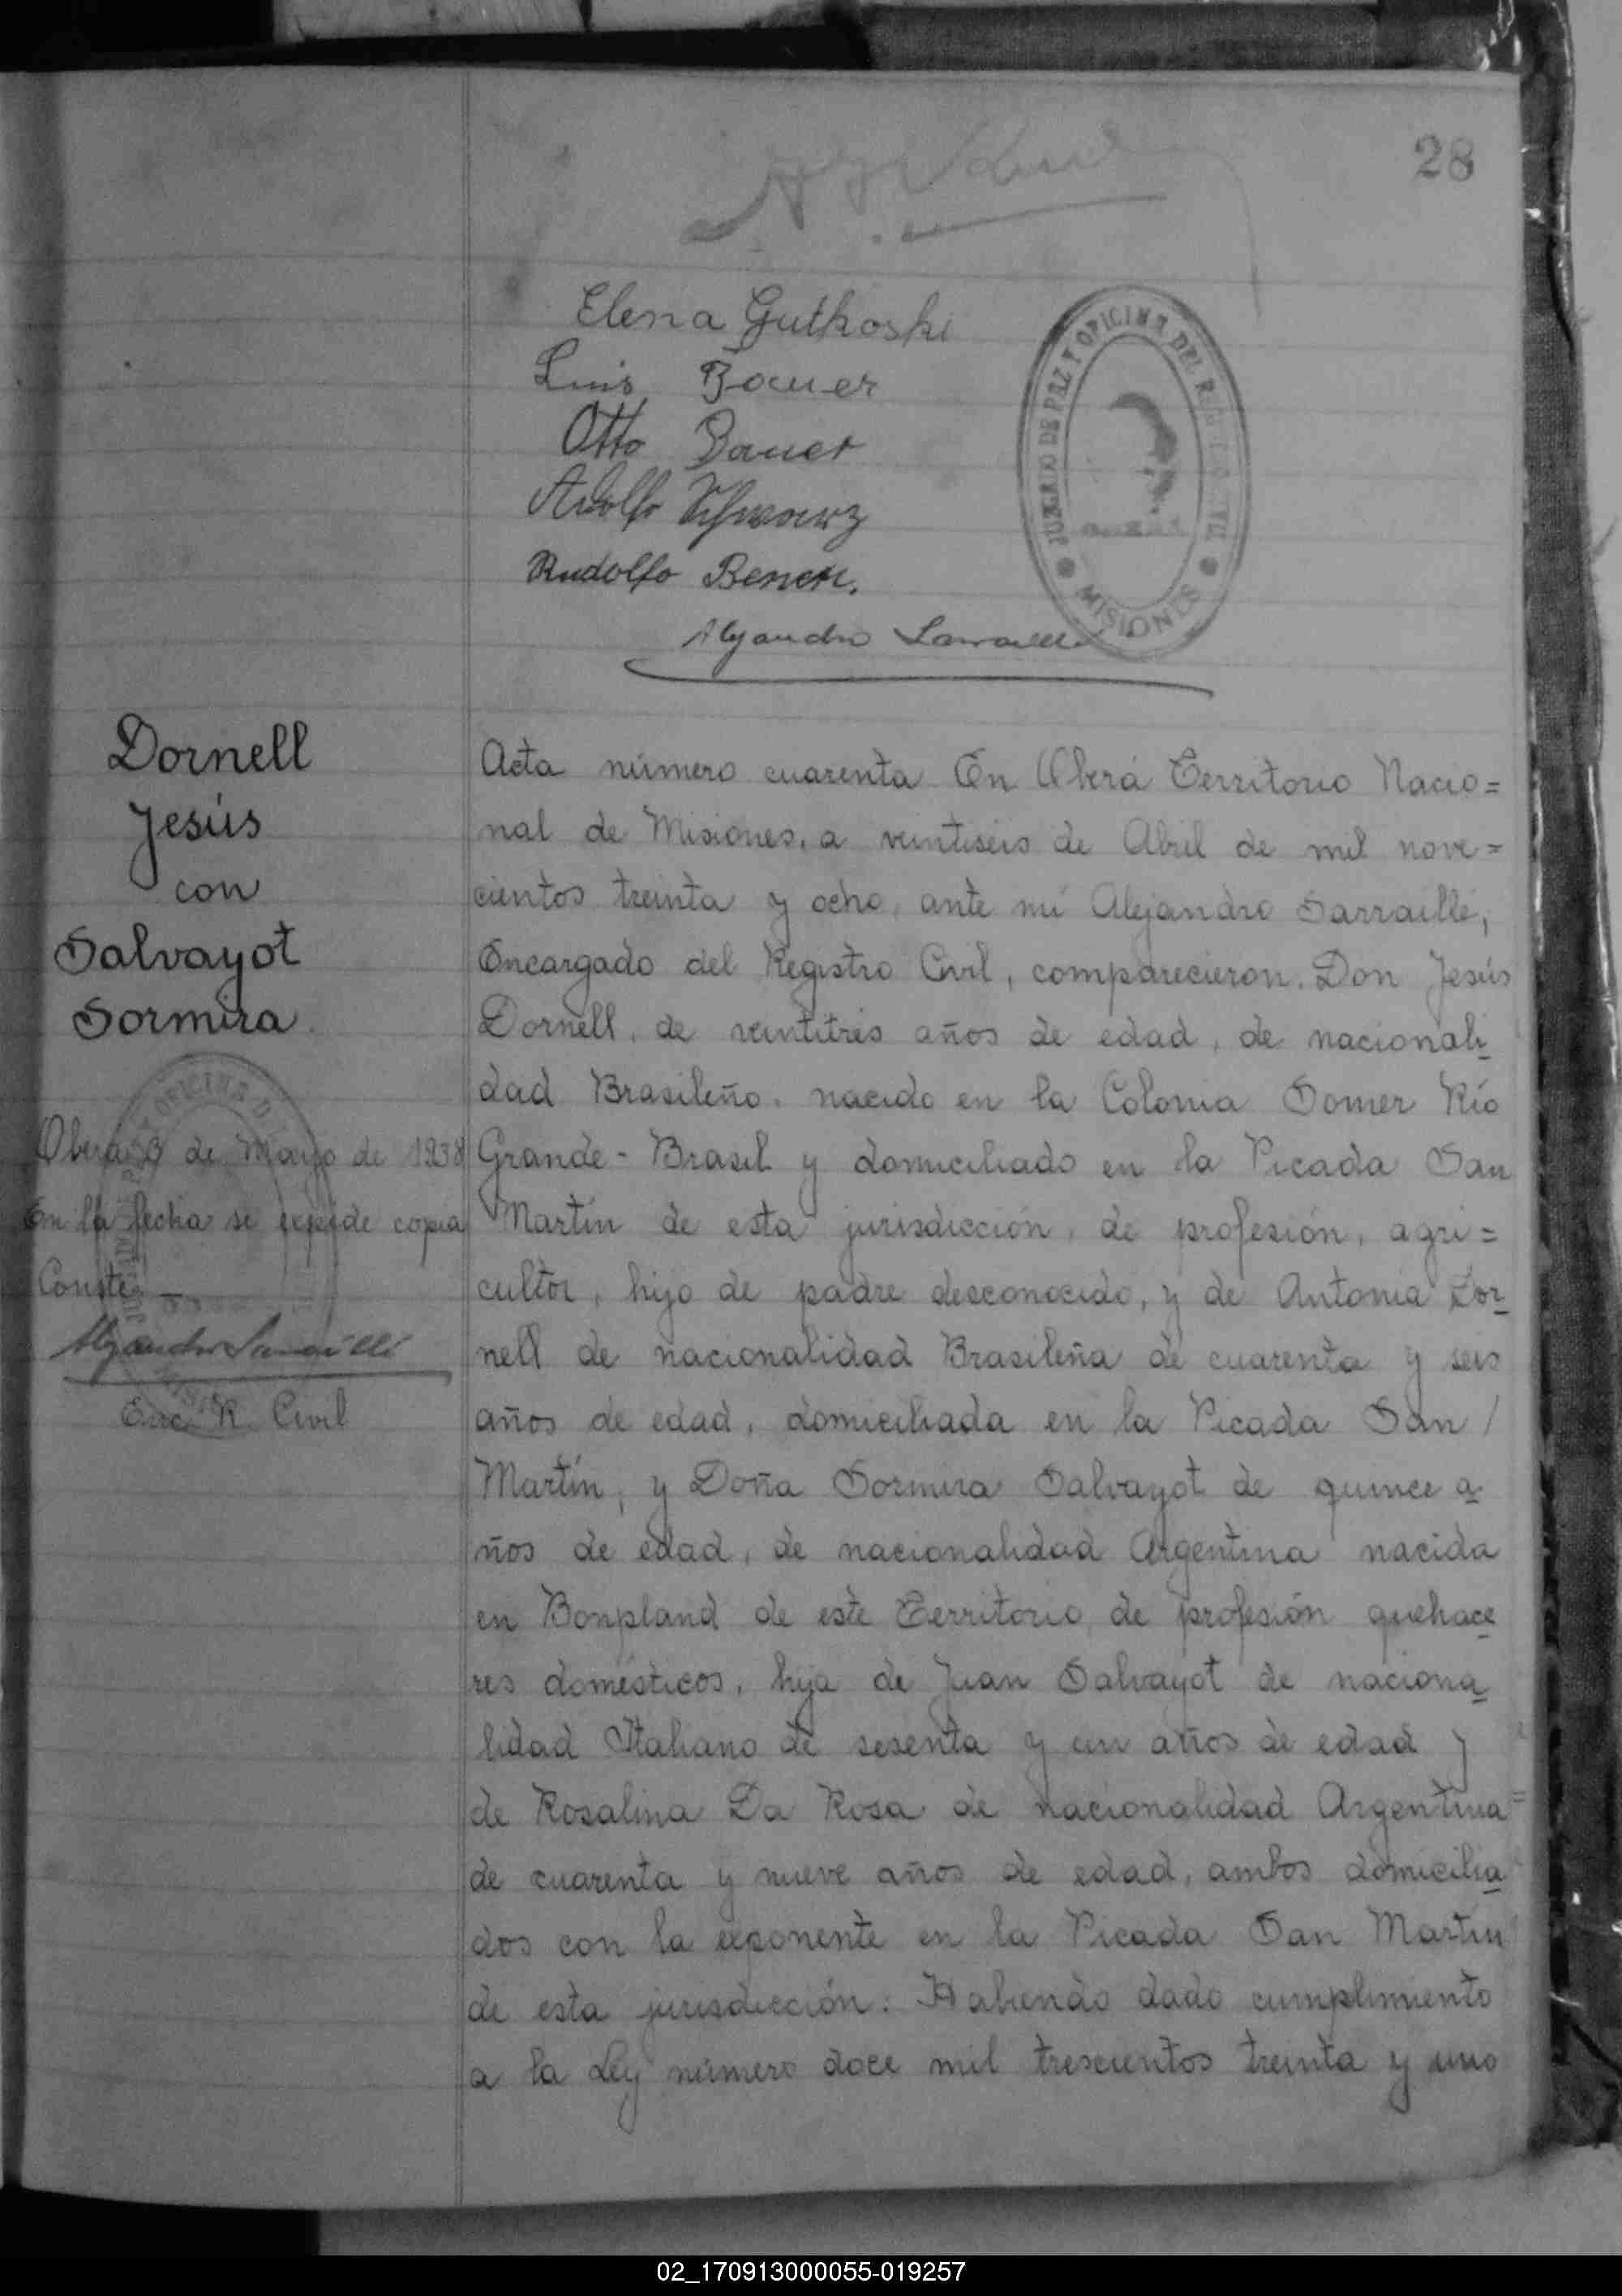 28
Elena Gutkoski
Luis Bauer
Otto Bauer
Adolfo Schwarz
Rudolfo
Alejandro Sarraillé
JUZGADO DE PAZ Y OFICINA DEL REGISTRO CIVIL
MISIONES
Dornell
Jesús
con
Salvayot
Sormira
Oberá 3 de Mayo de 1938
En la fecha se expide copia
Conste —
Alejandro Sarraillé
Enc. R. Civil
Acta número cuarenta En Oberá Territorio Nacio=
nal de Misiones, a veintiseis de Abril de mil nove=
cientos treinta y ocho, ante mi Alejandro Sarraillé,
Encargado del Registro Civil, comparecieron. Don Jesús
Dornell, de veintitres años de edad, de nacionali
dad Brasileño, nacido en la Colonia Somer Río
Grande - Brasil y domiciliado en la Picada San
Martín de esta jurisdicción, de profesión, agri=
cultor, hijo de padre desconocido, y de Antonia Dor
nell de nacionalidad Brasileña de cuarenta y seis
años de edad, domiciliada en la Picada San /
Martín, y Doña Sormira Salvayot de quince a
ños de edad, de nacionalidad Argentina nacida
en Bonpland de este Territorio, de profesión quehace
res domésticos, hija de Juan Salvayot de naciona
lidad Italiano de sesenta y un años de edad y
de Rosalina Da Rosa de nacionalidad Argentina=
de cuarenta y nueve años de edad, ambos domicilia
dos con la exponente en la Picada San Martín
de esta jurisdicción: Habiendo dado cumplimiento
a la Ley número doce mil trescientos treinta y uno
02_170913000055-019257